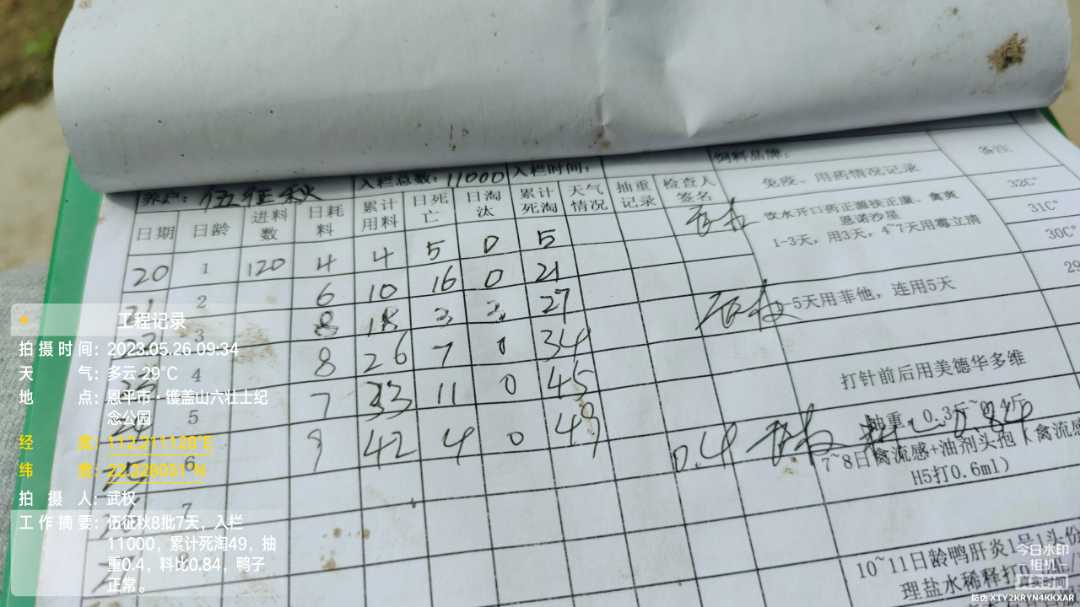 养户: 伍征秋 入栏总数: 11000 入栏时间: 饲料品牌:
日期 日龄 进料数 日耗料 累计用料 日死亡 日淘汰 累计死淘 天气情况 抽重记录 检查人签名 免疫、用药情况记录 备注
20 1 120 4 4 5 0 5
饮水开口药正瀛扶正康、禽爽
恩诺沙星
1-3天，用3天，4~7天用霉立消
32C°
31C°
30C°
21 2 6 10 16 0 21
3 8 18 3 3 27
-5天用菲他，连用5天
29
4 8 26 7 0 34
5 7 33 11 0 45
打针前后用美德华多维
6 9 42 4 0 49 0.4
抽重：0.3斤~0.4斤
料比0.84
7~8日禽流感+油剂头孢（禽流感
H5打0.6ml）
7
10~11日龄鸭肝炎1号1头份
理盐水稀释打
工程记录
拍摄时间: 2023.05.26 09:34
天气: 多云 29°C
地点: 恩平市·镬盖山六壮士纪
念公园
经度: 112.211128°E
纬度: 22.328031°N
拍摄人: 武权
工作摘要: 伍征秋8批7天，入栏
11000，累计死淘49，抽
重0.4，料比0.84，鸭子
正常。
今日水印
相机
真实时间
防伪 XTY2KRYN4KKXAR